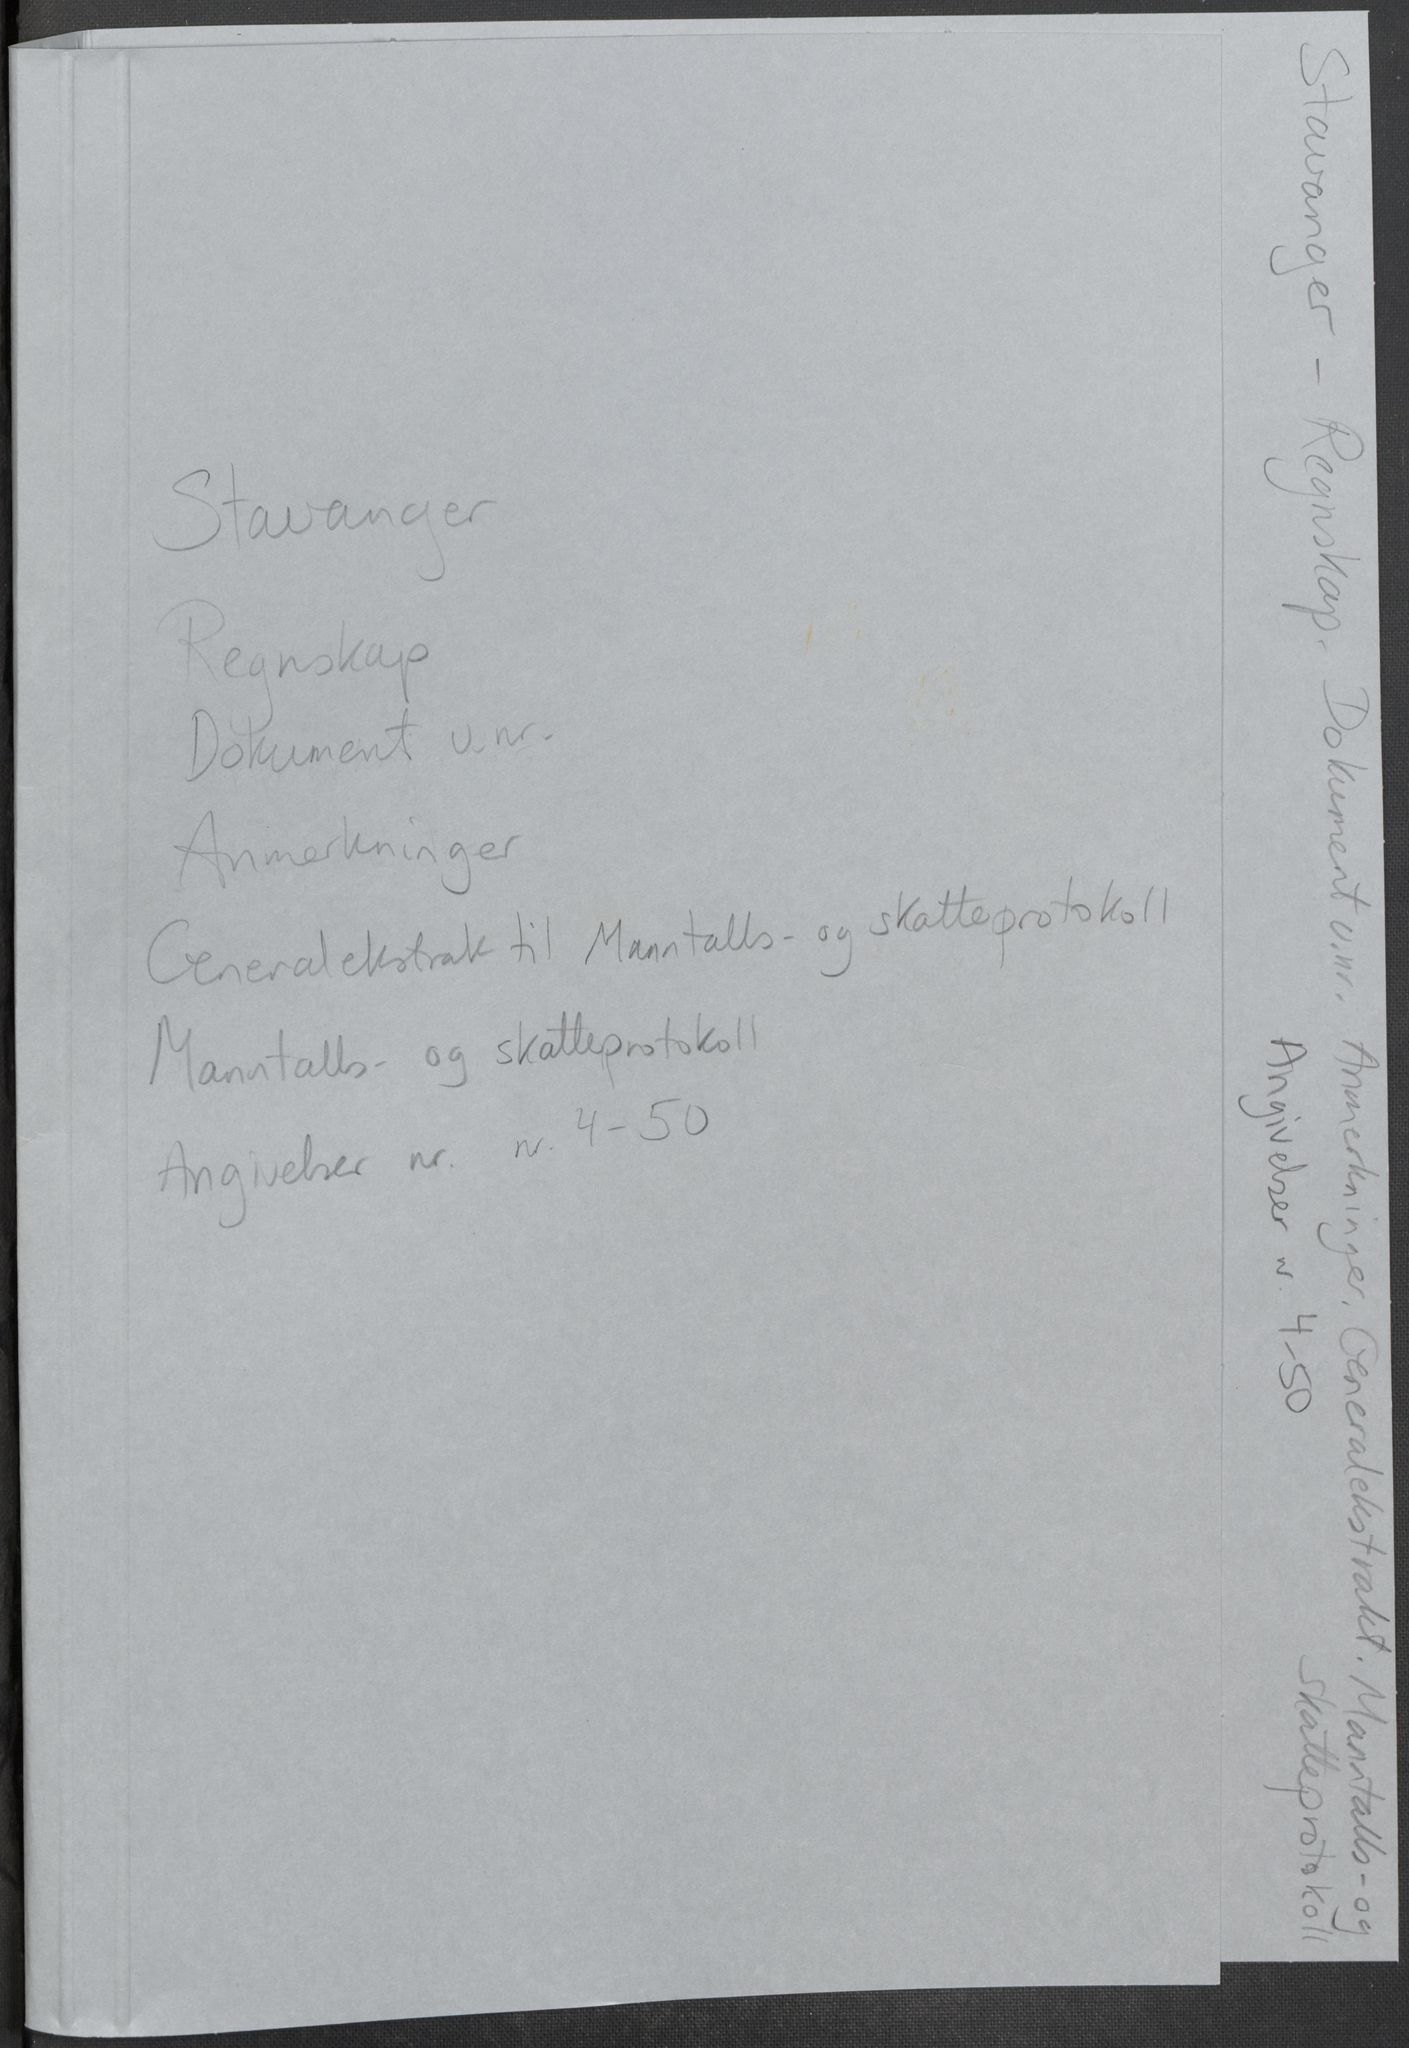 Stavanger
Regnskap
Dokument u.nr.
Anmerkninger
Generalekstrak til Manntalls- og skatteprotokoll
Manntalls- og skatteprotokoll
Angivelser nr. nr. 4-50
Stavanger - Regnskap. Dokument u.nr. Anmerkninger. Generalekstrakt. Manntalls- og
skatteprotokoll
Angivelser nr. 4-50